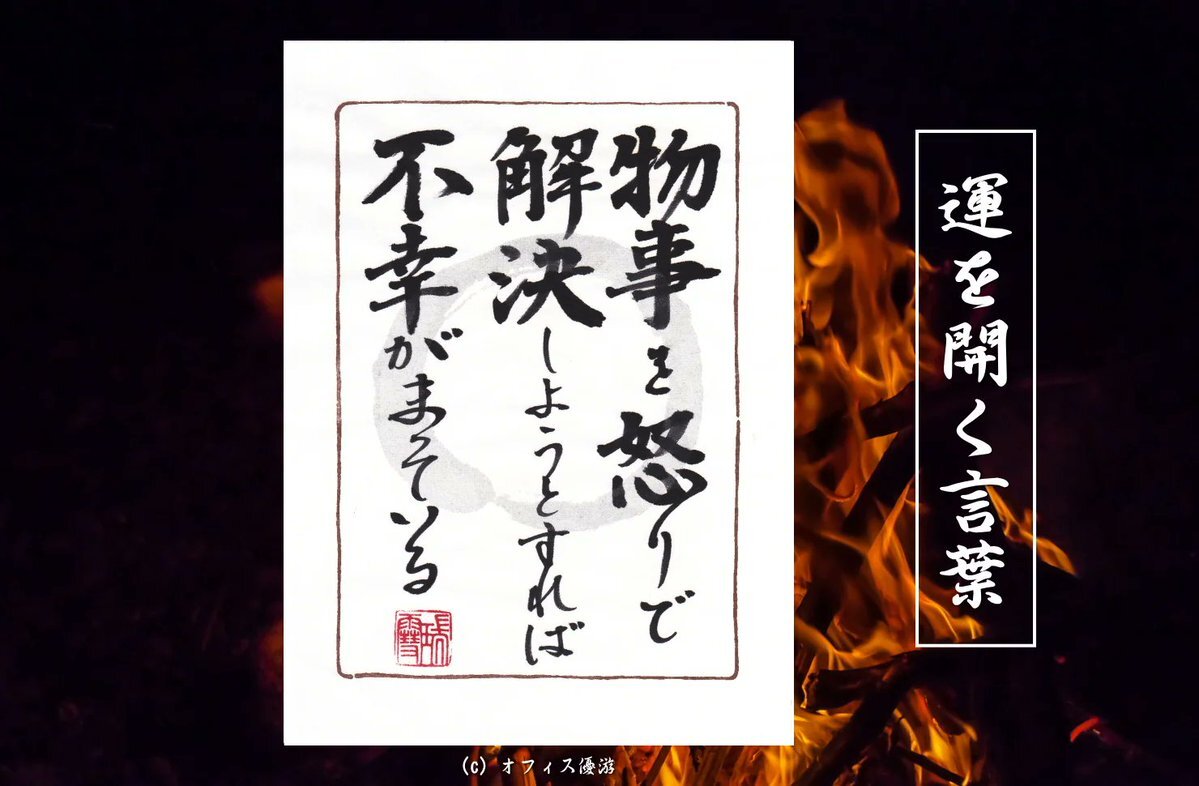 運を開く言葉
物事を怒りで
解決しようとすれば
不幸がまっている
(c) オフィス優游